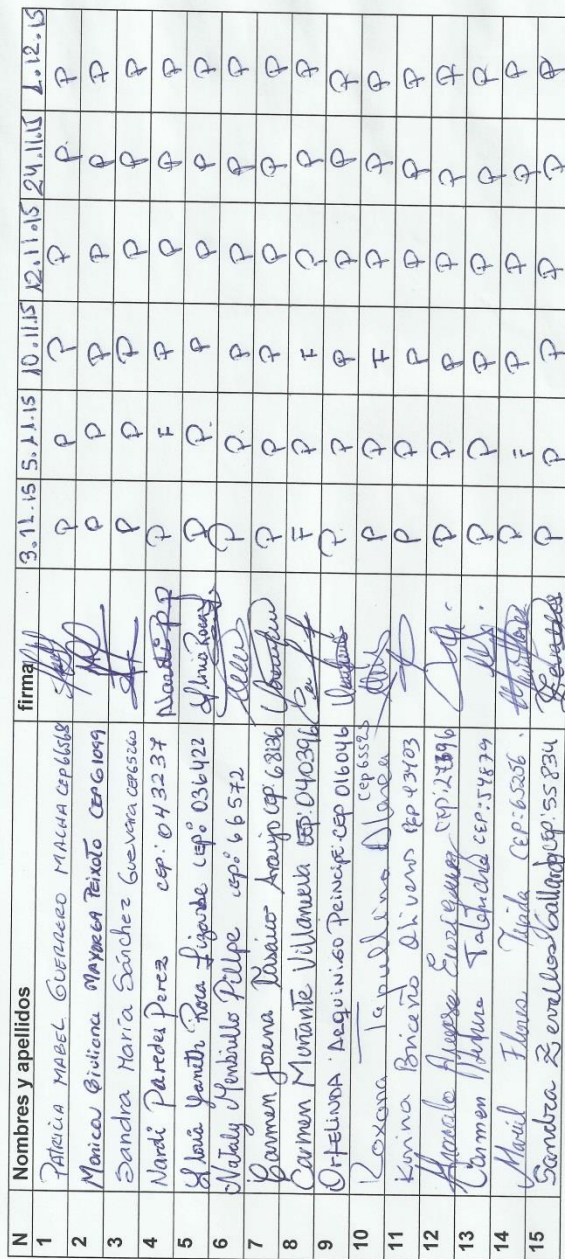 N Nombres y apellidos firma 3.11.15 5.11.15 10.11.15 12.11.15 24.11.15 1.12.15
1 PATRICIA MABEL GUERRERO MACHA CEP66568 P P P P P. P
2 Monica Giuliana MAYORGA PEIXOTO CEP61099 P P P P P P
3 Sandra María Sánchez Guevara CEP65260 P P P P P P
4 Nardi Paredes Perez cep: 043237 Nardi P P P F P P P P
5 Yaneth Roca cep: 036422 P P. P P P P
6 Nataly Pillpe cep: 66572 P P. P P P P
7 Carmen Araujo cep: 68136 P P P P P P
8 Carmen Muñante Villanueva CEP: 040396 F P F P P P
9 ORFELINDA ARQUINIGO PRINCIPE: CEP 016046 P. P P P P P
10 Roxana Tapullino CEP65525 P P F P P P
11 Karina Briceño Oliveros CEP 43403 P P P P P P
12 CEP: 27896 P P P P P P
13 Carmen CEP: 54879 P P P P P P
14 Flores CEP: 65206. P F P P P P
15 Sandra Zevallos Gallardo CEP: 55834 Zevallos P P P P P P